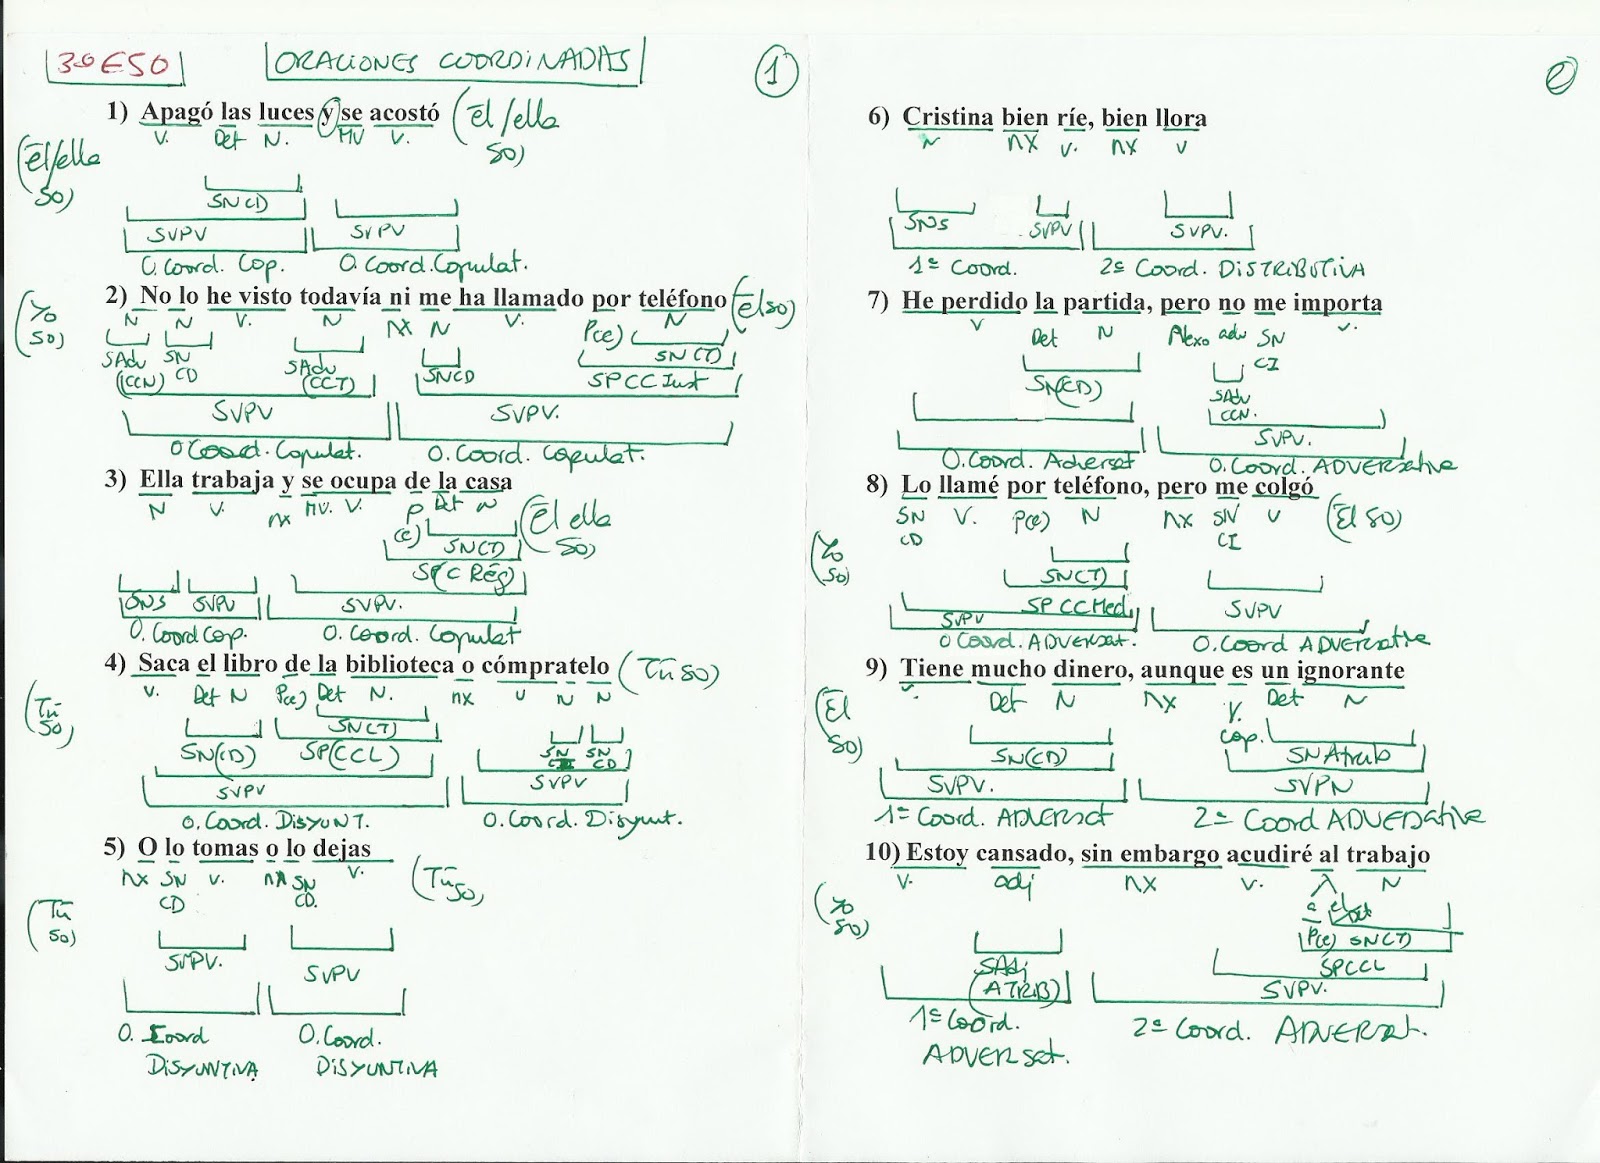 3º ESO
ORACIONES COORDINADAS
1
1) Apagó las luces y se acostó (él/ella SO)
V. Det N. MV V.
(él/ella SO)
SNCD
SVPV SVPV
O. Coord. Cop. O. Coord. Copulat.
2) No lo he visto todavía ni me ha llamado por teléfono (él SO)
(Yo SO)
N N V. N nx N V. P(e) N
SAdv (CCN) SN CD SAdv (CCT) SNCD SN(T)
SPCC Inst
SVPV SVPV.
O Coord. Copulat. O. Coord. Copulat.
3) Ella trabaja y se ocupa de la casa
N V. nx MV. V. P Det N (Él ella SO)
(e) SN(T)
SP(C Rég)
SNS SVPV SVPV.
O. Coord Cop. O. Coord. Copulat
4) Saca el libro de la biblioteca o cómpratelo (Tú SO)
V. Det N P(e) Det N. nx V N N
(Tú SO)
SN(T)
SN(CD) SP(CCL) SN SN CD
SVPV SVPV
O. Coord. DISYUNT. O. Coord. Disyunt.
5) O lo tomas o lo dejas
nx SN CD V. nx SN CD. V. (Tú SO)
(Tú SO)
SVPV. SVPV
O. Coord DISYUNTIVA O. Coord. DISYUNTIVA
2
6) Cristina bien ríe, bien llora
N nx V. nx V
SNS SVPV SVPV.
1ª Coord. 2ª Coord. DISTRIBUTIVA
7) He perdido la partida, pero no me importa
V Det N Nexo adv SN CI V.
SN(CD) SAdv CCN.
SVPV.
O. Coord. Adversat O. Coord. ADVERsative
8) Lo llamé por teléfono, pero me colgó
SN CD V. P(e) N nx SN CI V (Él SO)
(Yo SO)
SN(T)
SPCCMed.
SVPV SVPV
O Coord. ADVERsat. O. Coord ADVERsative
9) Tiene mucho dinero, aunque es un ignorante
V. Det N nx V. cop. Det N
(Él SO)
SN(CD) SNAtrib
SVPV. SVPN
1ª Coord. ADVERsat 2ª Coord ADVERsative
10) Estoy cansado, sin embargo acudiré al trabajo
V. adj nx V. N
(Yo SO)
a el
P(e) SN(T)
SAdj (ATRIB) SPCCL
SVPV.
1ª Coord. ADVERsat. 2ª Coord. ADVERsat.